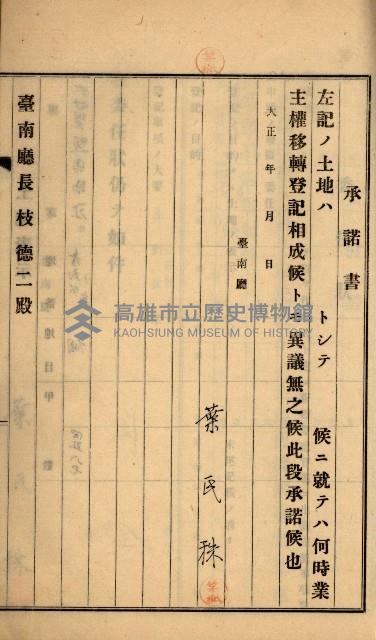 承諾書
左記ノ土地ハ　トシテ　候ニ就テハ何時業
主權移轉登記相成候トモ異議無之候此段承諾候也
大正　年　月　日
臺南廳
葉氏珠
臺南廳長枝德二殿
高雄市立歷史博物館
KAOHSIUNG MUSEUM OF HISTORY